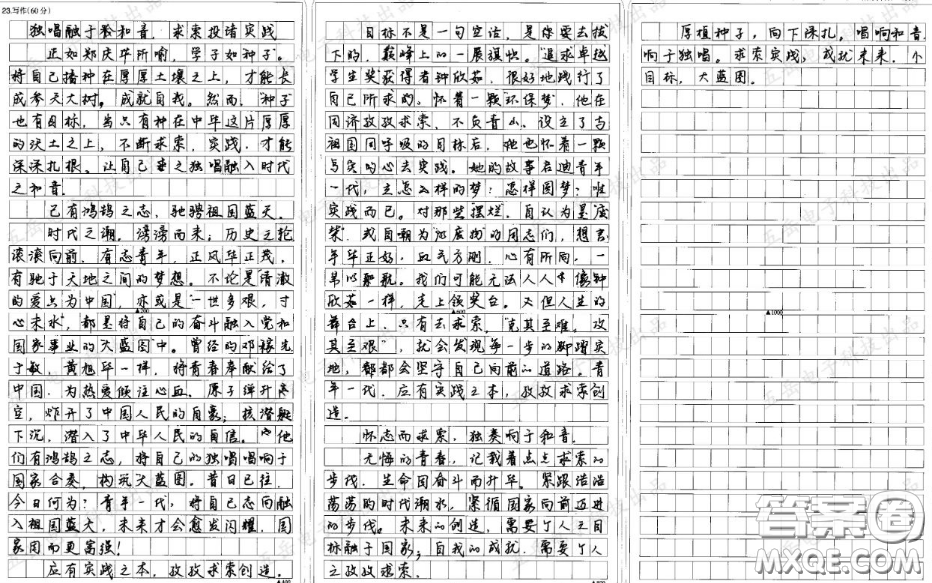 23.写作(60分)
独唱融于和音，求索投诸实践
正如郑庆华所喻，学子如种子，
将自己播种在厚厚土壤之上，才能长
成参天大树。成就自我。然而，"种子"
也有目标，当只有种在中华这片厚厚
的沃土之上，不断求索，实践，才能
深深扎根。让自己之独唱融入时代
之和音。
己有鸿鹄之志，驰骋祖国蓝天。
时代之潮，滂滂而来；历史之轮
滚滚向前。有志青年，正风华正茂，
有驰于天地之间的梦想。不论是清澈
的爱只为中国，亦或是一世多艰，寸
心未水"，都是将自己的奋斗融入党和
国家事业的大蓝图中。曾经的邓稼先
于敏，黄旭华一样，将青春奉献给了
中国，为热爱倾注心血。原子弹升
空，炸开了中国人民的自豪；核潜艇
下沉，潜入了中华人民的自信。他
们有鸿鹄之志，将自己的独唱唱响于
国家合奏，构筑大蓝图。昔日已往，
今日何为？青年一代，将自己志向融
入祖国蓝天，未来才会愈发闪耀，国
家因而更富强！
应有实践之本，孜孜求索创造。
目标不是一句空话，是你要去拔
下的，巅峰上的一展旗帜。"追求卓越
学生奖获得者钟欣茹，很好地践行了
自己所求的。怀着一颗"环保梦"，他在
同济孜孜求索，不负青山，设立了与
祖国同呼吸的目标后，她也怀着一颗
与实的心去实践。她的故事启迪青年
一代，立怎么样的梦；怎样圆梦；唯
实践而已。对那些"摆烂"，自认为是"废
柴"，或自嘲为"的同志们，想言
年华正好，血气方刚，心有所向，一
苇以航。我们可能无法人人都像钟
欣茹一样，走上领奖台。但人生的
舞台上，只有去求索，"克其至难，攻
其至艰"，就会发现每一步的脚踏实
地，都都会坚守自己向前的道路。青
年一代，应有实践之本，孜孜求索创
造。
怀志而求索，独奏响于和音。
无悔的青春，记载着点点求索的
步伐，生命因奋斗而升华。紧跟浩浩
荡荡的时代潮水，紧循国家向前迈进
的步伐。未来的创造，需要个人之目
标融于国家；自我的成就，需要个人
之孜孜求索。
厚植种子，向下深扎，唱响和音
响于独唱。求索实践，成就未来。个
目标，大蓝图。
▲1000
答案圈
MXQE.COM